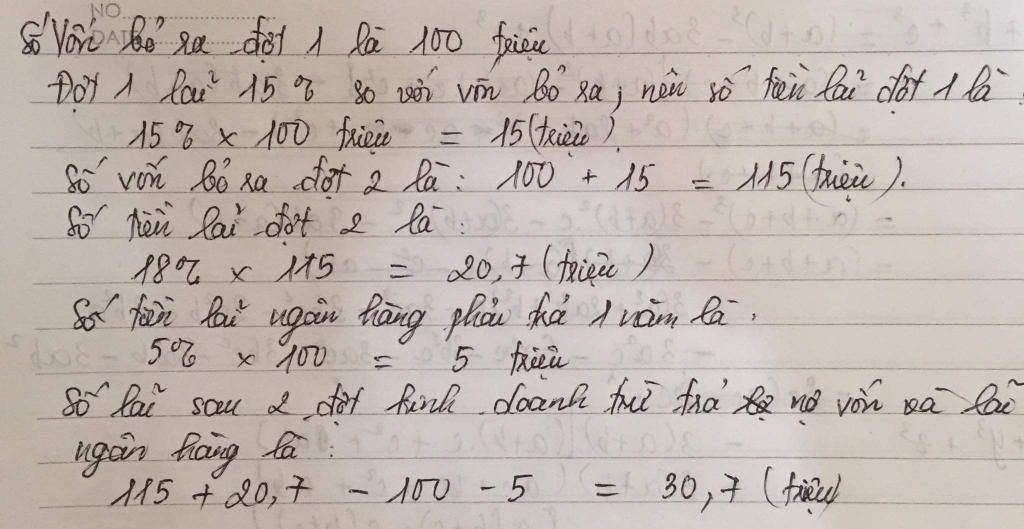 NO
DATE
Số vốn bỏ ra đợt 1 là 100 triệu
Đợt 1 lãi 15% so với vốn bỏ ra, nên số tiền lãi đợt 1 là
15% × 100 triệu = 15 (triệu).
Số vốn bỏ ra đợt 2 là: 100 + 15 = 115 (triệu).
Số tiền lãi đợt 2 là:
18% × 115 = 20,7 (triệu)
Số tiền lãi ngân hàng phải trả 1 năm là.
5% × 100 = 5 triệu
Số lãi sau 2 đợt kinh doanh trừ trả nợ vốn và lãi
ngân hàng là:
115 + 20,7 - 100 - 5 = 30,7 (triệu)